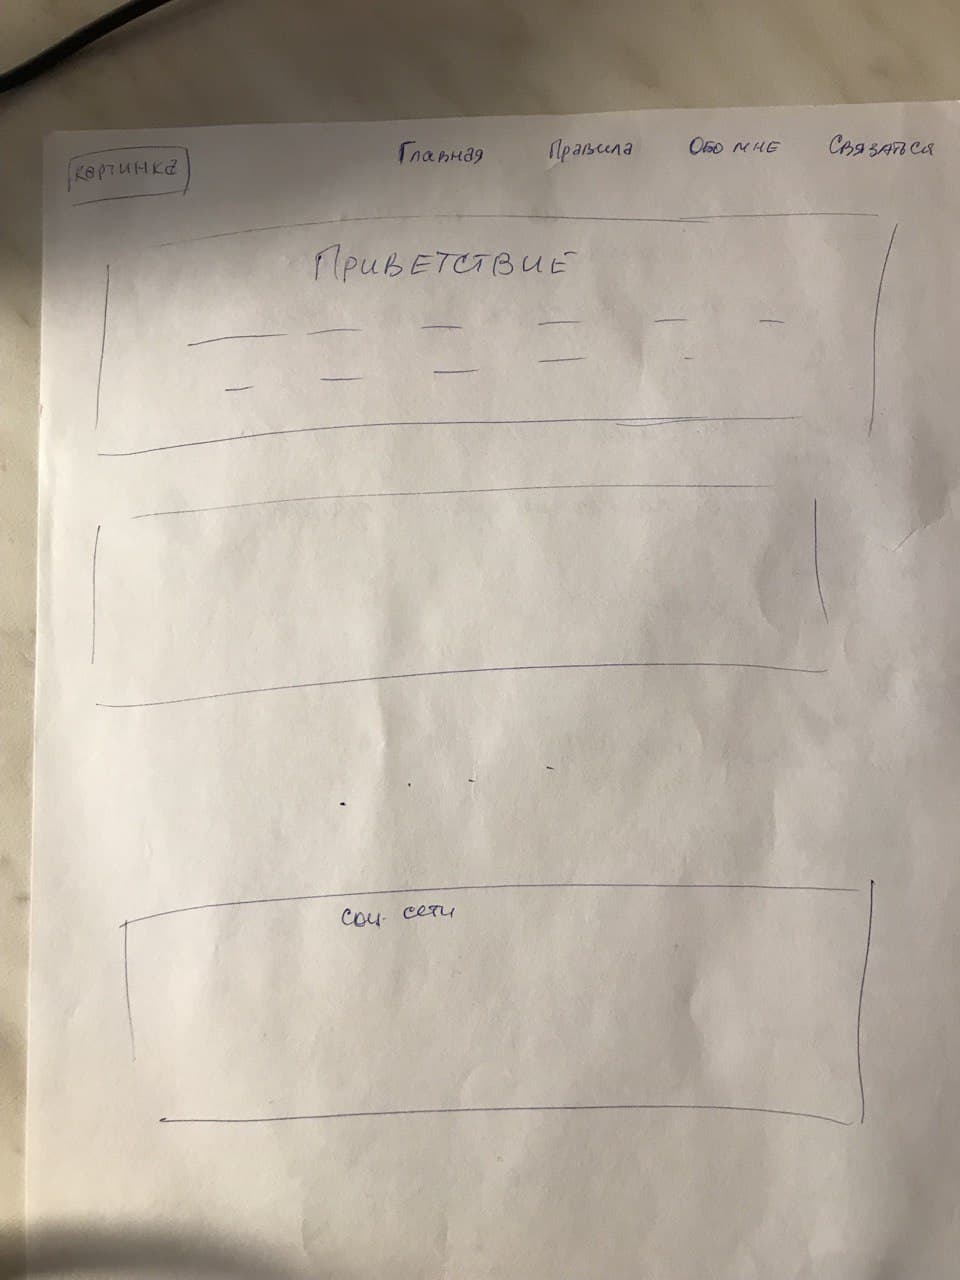 картинка
Главная Правила Обо мне Связаться
Приветствие
Соц. сети